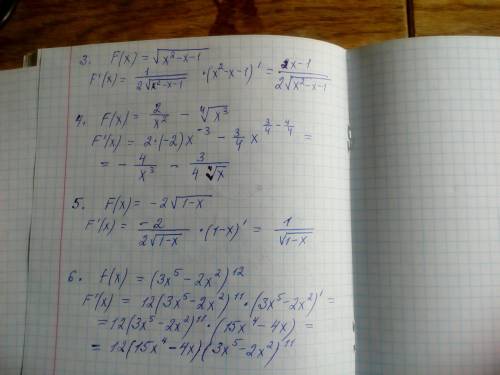 3. F(x) = √(x²-x-1)
F'(x) = 1/(2√(x²-x-1)) · (x²-x-1)' = (2x-1)/(2√(x²-x-1))
4. F(x) = 2/x² - ⁴√(x³)
F'(x) = 2·(-2)x⁻³ - 3/4 x^(3/4 - 4/4) =
= - 4/x³ - 3/(4 ⁴√x)
5. F(x) = -2√(1-x)
F'(x) = -2/(2√(1-x)) · (1-x)' = 1/√(1-x)
6. f(x) = (3x⁵-2x²)¹²
F'(x) = 12(3x⁵-2x²)¹¹·(3x⁵-2x²)' =
= 12(3x⁵-2x²)¹¹·(15x⁴-4x) =
= 12(15x⁴-4x)(3x⁵-2x²)¹¹